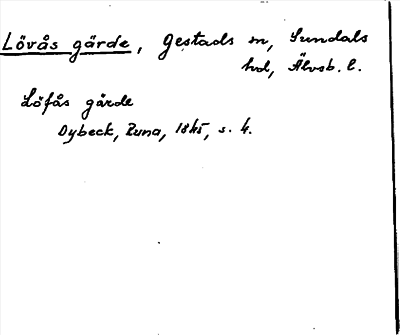 Lövås gärde, Gestads sn, Sundals
hd, Älvsb. l.
Löfås gärde
Dybeck, Runa, 1845, s. 4.